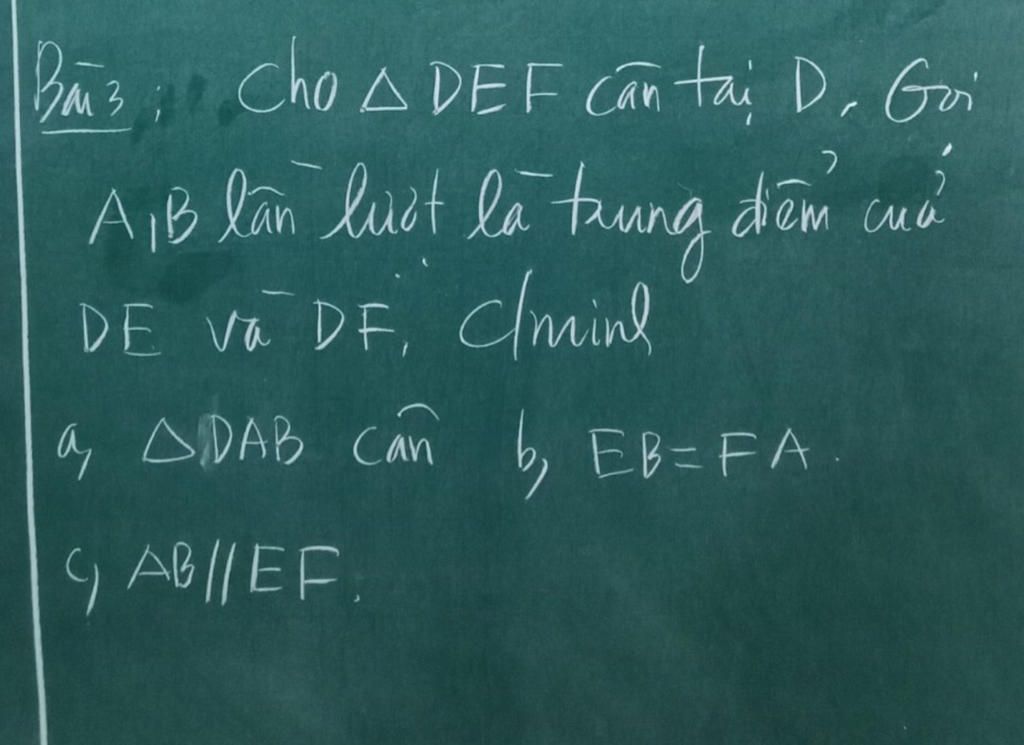 Bài 3: Cho △ DEF cân tại D. Gọi
A, B lần lượt là trung điểm của
DE và DF. C/minh
a, △DAB cân b, EB = FA.
c, AB // EF.